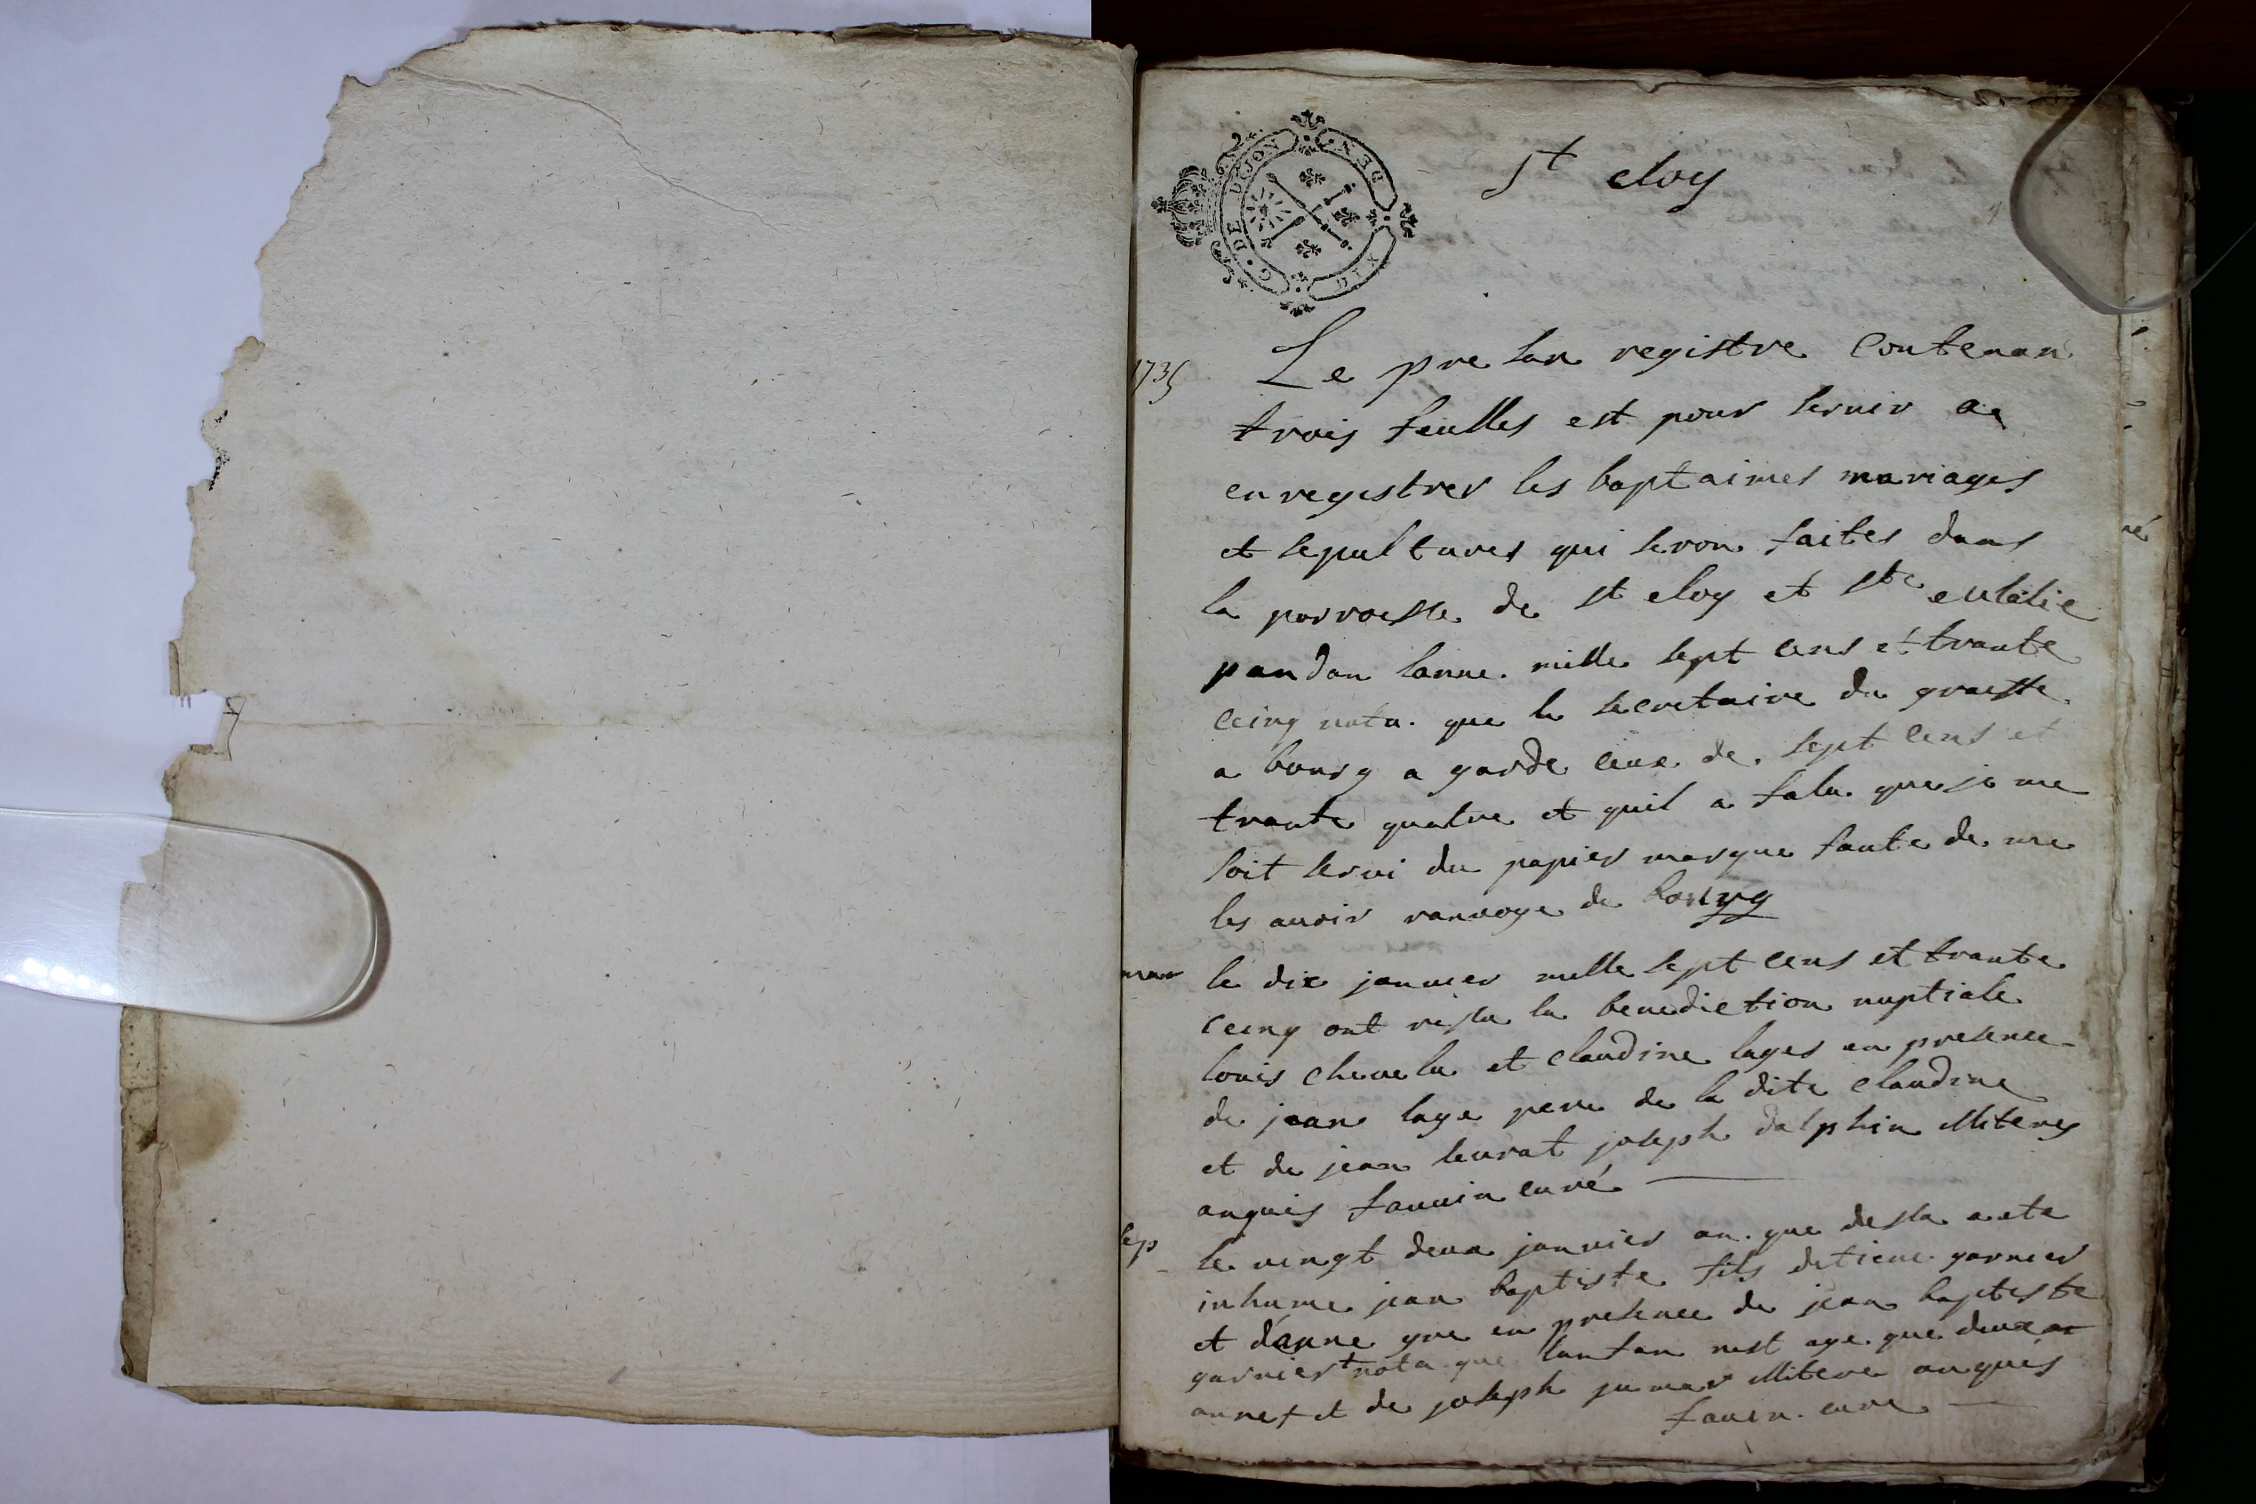 G. DE DIJON
DEN.
DIX
St eloy
1735
Le presan registre contenan
trois feulles est pour servir a
enregistrer les baptaimes mariages
et sepultures qui seron faites dans
la parroesse de st eloy et ste eulalie
pandan lanne mille sept cens et trante
ceinq nota que le secretaire du graeffe
a bourg a garde ceux de sept cens et
trante quatre et quil a falu que je me
soit servi du papier marque faute de me
les avoir ranvoye de bourg
mar
le dix janvier mille sept cens et trante
ceinq ont resu la benediction nuptiale
louis chevelu et claudine lages en presence
de jean lage pere de la dite claudine
et de jean leurat joseph dalphin illiteres
anquis favuin curé
sep
le vingt deux janvier an que desla a ete
inhume jean baptiste fils detiene garnier
et danne gre en presence de jean baptiste
garnier + nota que lanfan nest age que deux
annes + et de joseph jumar illitere anquis
faven cure